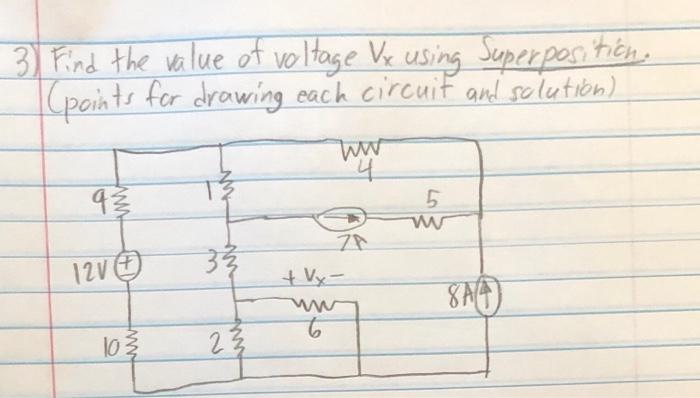 3) Find the value of voltage Vx using Superposition.
(points for drawing each circuit and solution)
4
9
1
5
7A
12V +
3
+ Vx -
8A
6
10
2